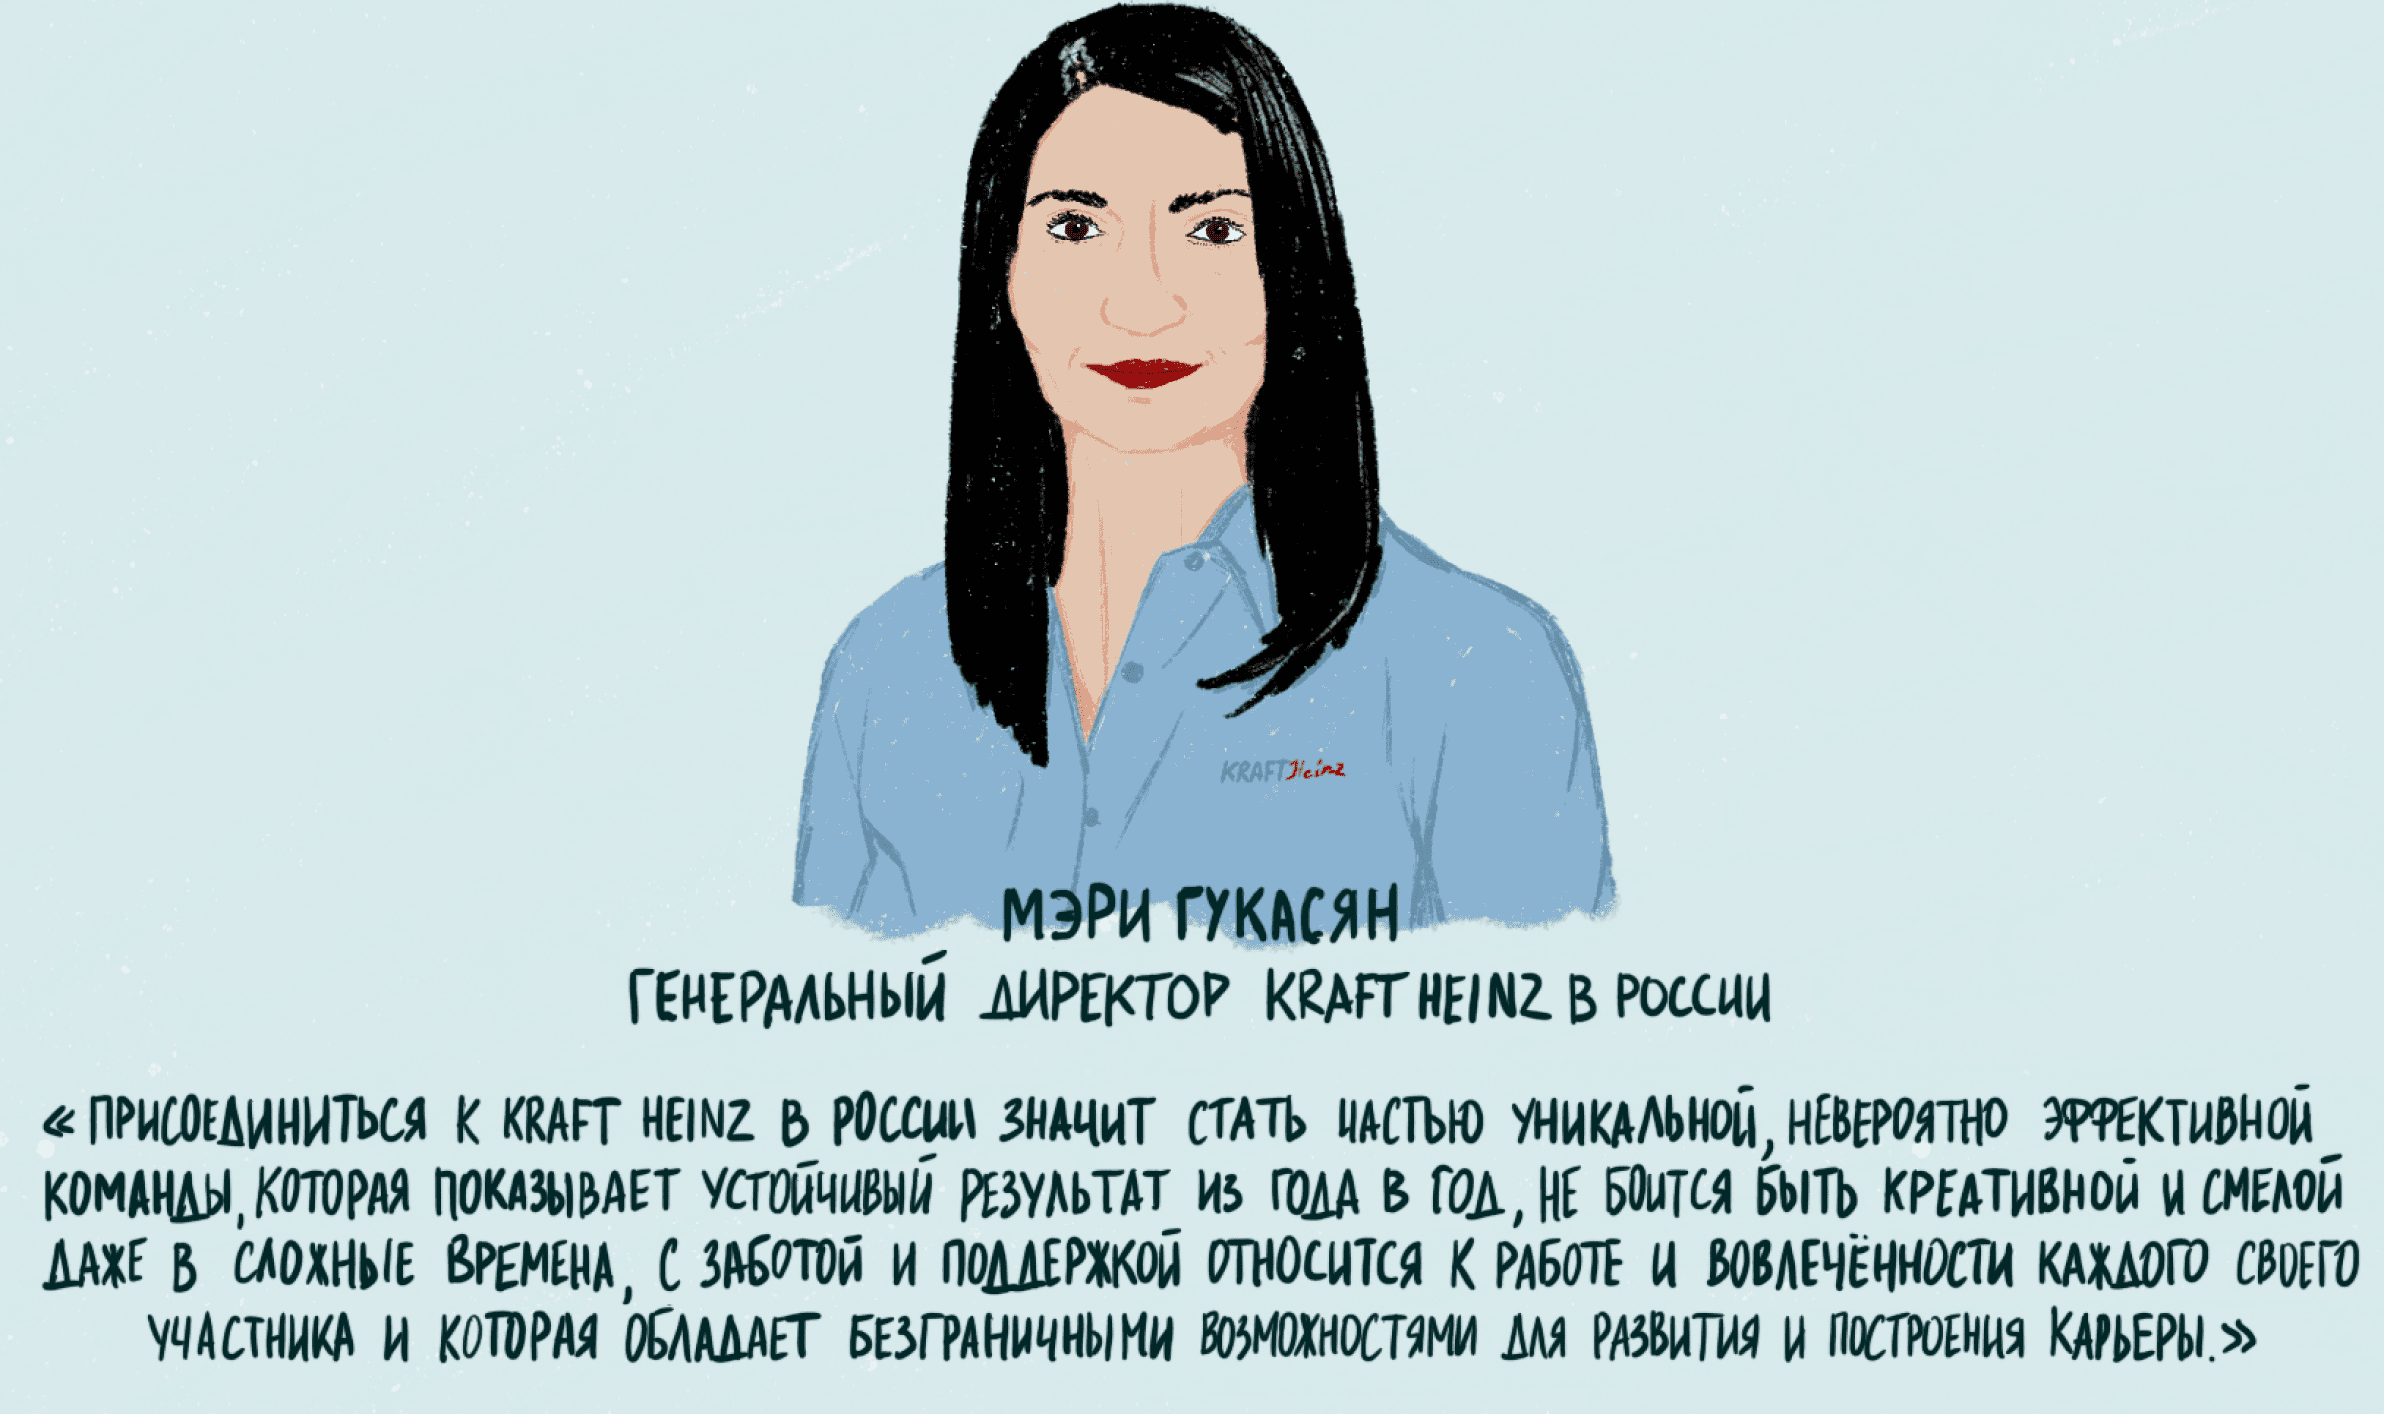 KRAFT Heinz
МЭРИ ГУКАСЯН
ГЕНЕРАЛЬНЫЙ ДИРЕКТОР KRAFT HEINZ В РОССИИ
«ПРИСОЕДИНИТЬСЯ К KRAFT HEINZ В РОССИИ ЗНАЧИТ СТАТЬ ЧАСТЬЮ УНИКАЛЬНОЙ, НЕВЕРОЯТНО ЭФФЕКТИВНОЙ
КОМАНДЫ, КОТОРАЯ ПОКАЗЫВАЕТ УСТОЙЧИВЫЙ РЕЗУЛЬТАТ ИЗ ГОДА В ГОД, НЕ БОИТСЯ БЫТЬ КРЕАТИВНОЙ И СМЕЛОЙ
ДАЖЕ В СЛОЖНЫЕ ВРЕМЕНА, С ЗАБОТОЙ И ПОДДЕРЖКОЙ ОТНОСИТСЯ К РАБОТЕ И ВОВЛЕЧЁННОСТИ КАЖДОГО СВОЕГО
УЧАСТНИКА И КОТОРАЯ ОБЛАДАЕТ БЕЗГРАНИЧНЫМИ ВОЗМОЖНОСТЯМИ ДЛЯ РАЗВИТИЯ И ПОСТРОЕНИЯ КАРЬЕРЫ.»